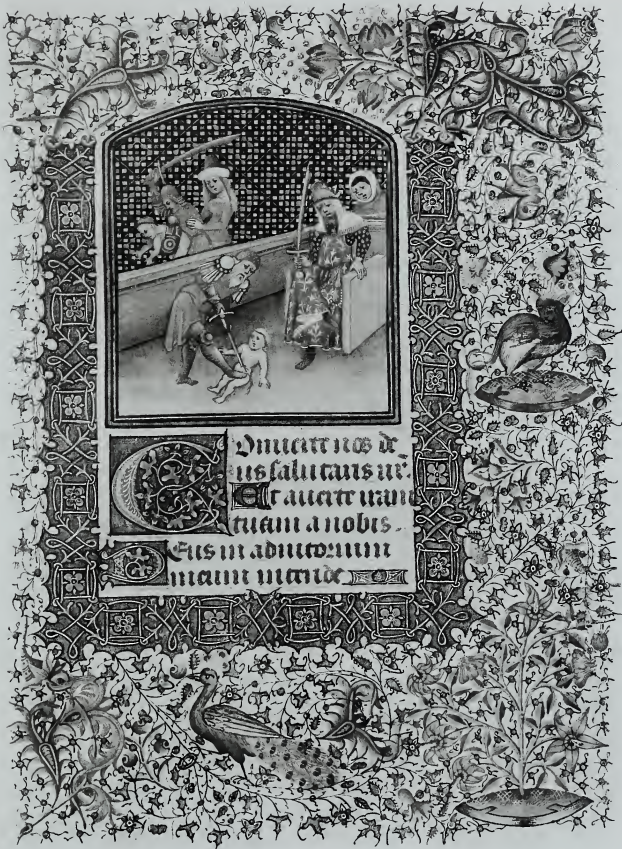 Conuerte nos de
us salutaris nr̃
Et auerte iram
tuam a nobis.
Deus in adiutorium
meum intende